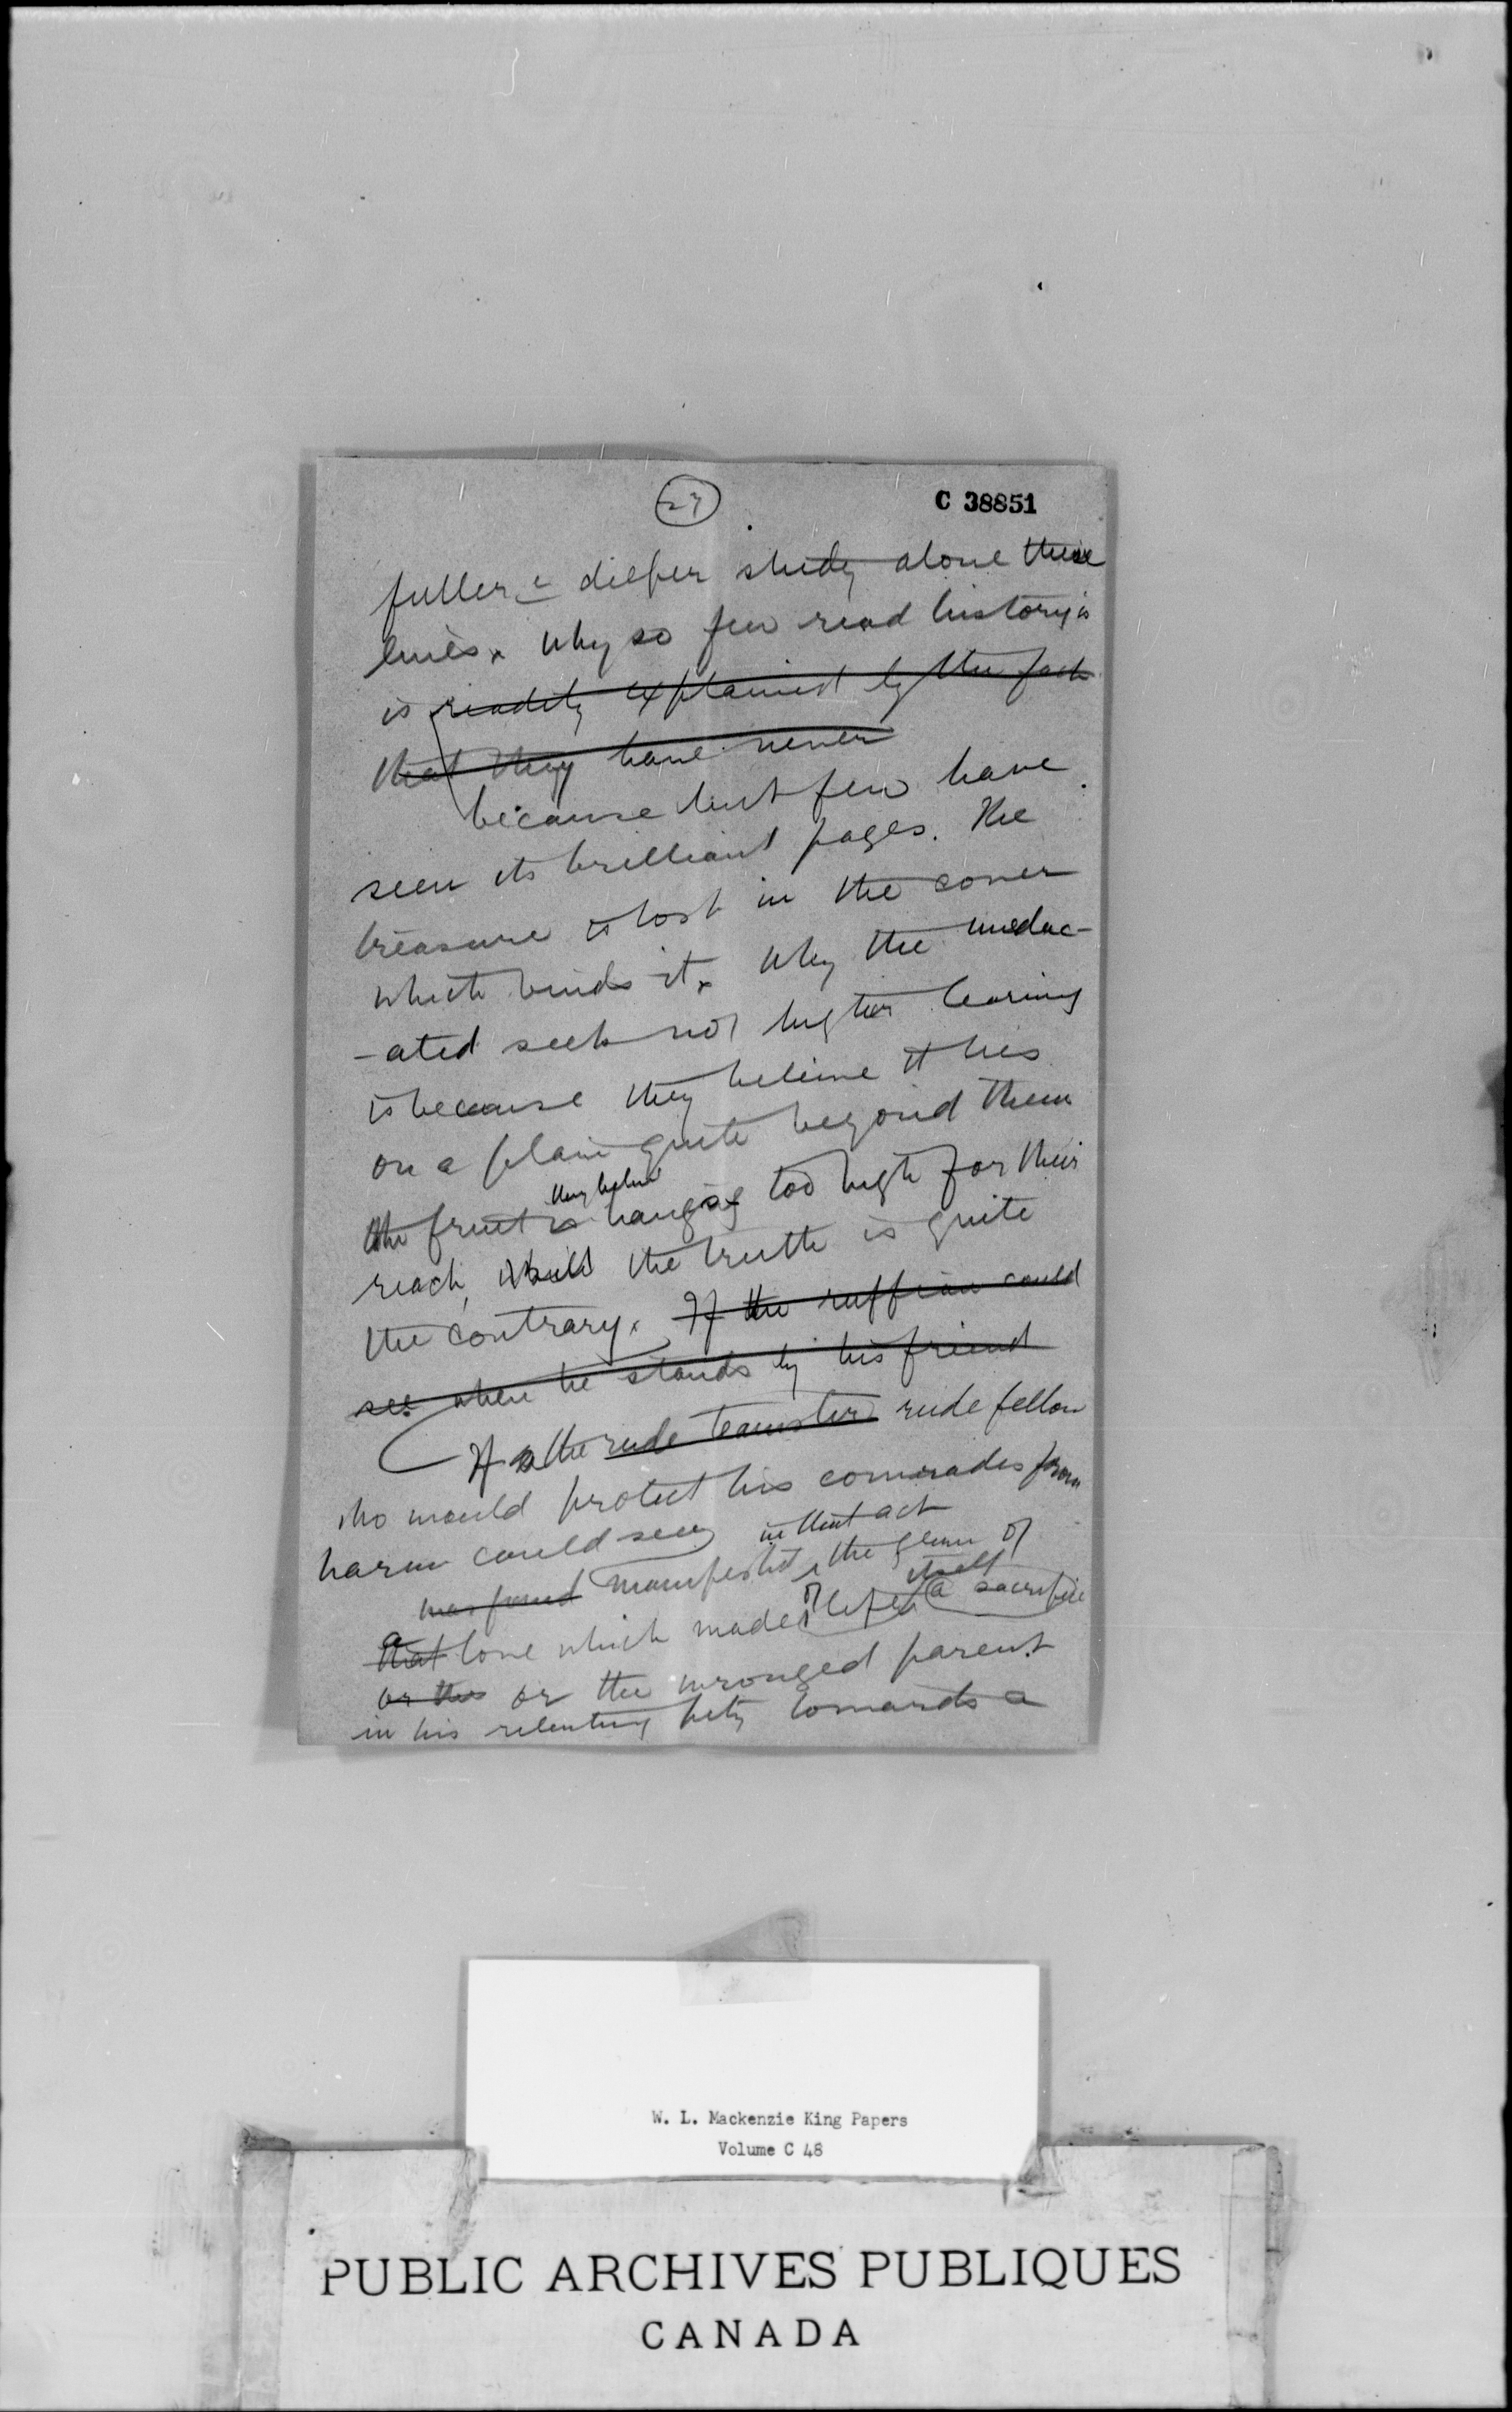 27
C 38851
fuller & deeper study alone these
lines. Why so few read history is
is readily explained by the fact
that they have never
because but few have
seen its brilliant pages. The
treasure is lost in the cover
which binds it. Why the uneduc-
-ated seek not higher learning
is because they believe it lies
on a plain quite beyond them
they believe
the fruit is hanging too high for their
reach, while the truth is quite
the contrary. If the ruffian could
see when he stands by his friend
If the rude teamster rude fellow
who would protect his comrades from
harm could see in that act
was found manifested the gleam of
a itself
that love which made of life a sacrifice
or the or the wronged parent
in his relenting pity towards a
W. L. Mackenzie King Papers
Volume C 48
PUBLIC ARCHIVES PUBLIQUES
CANADA